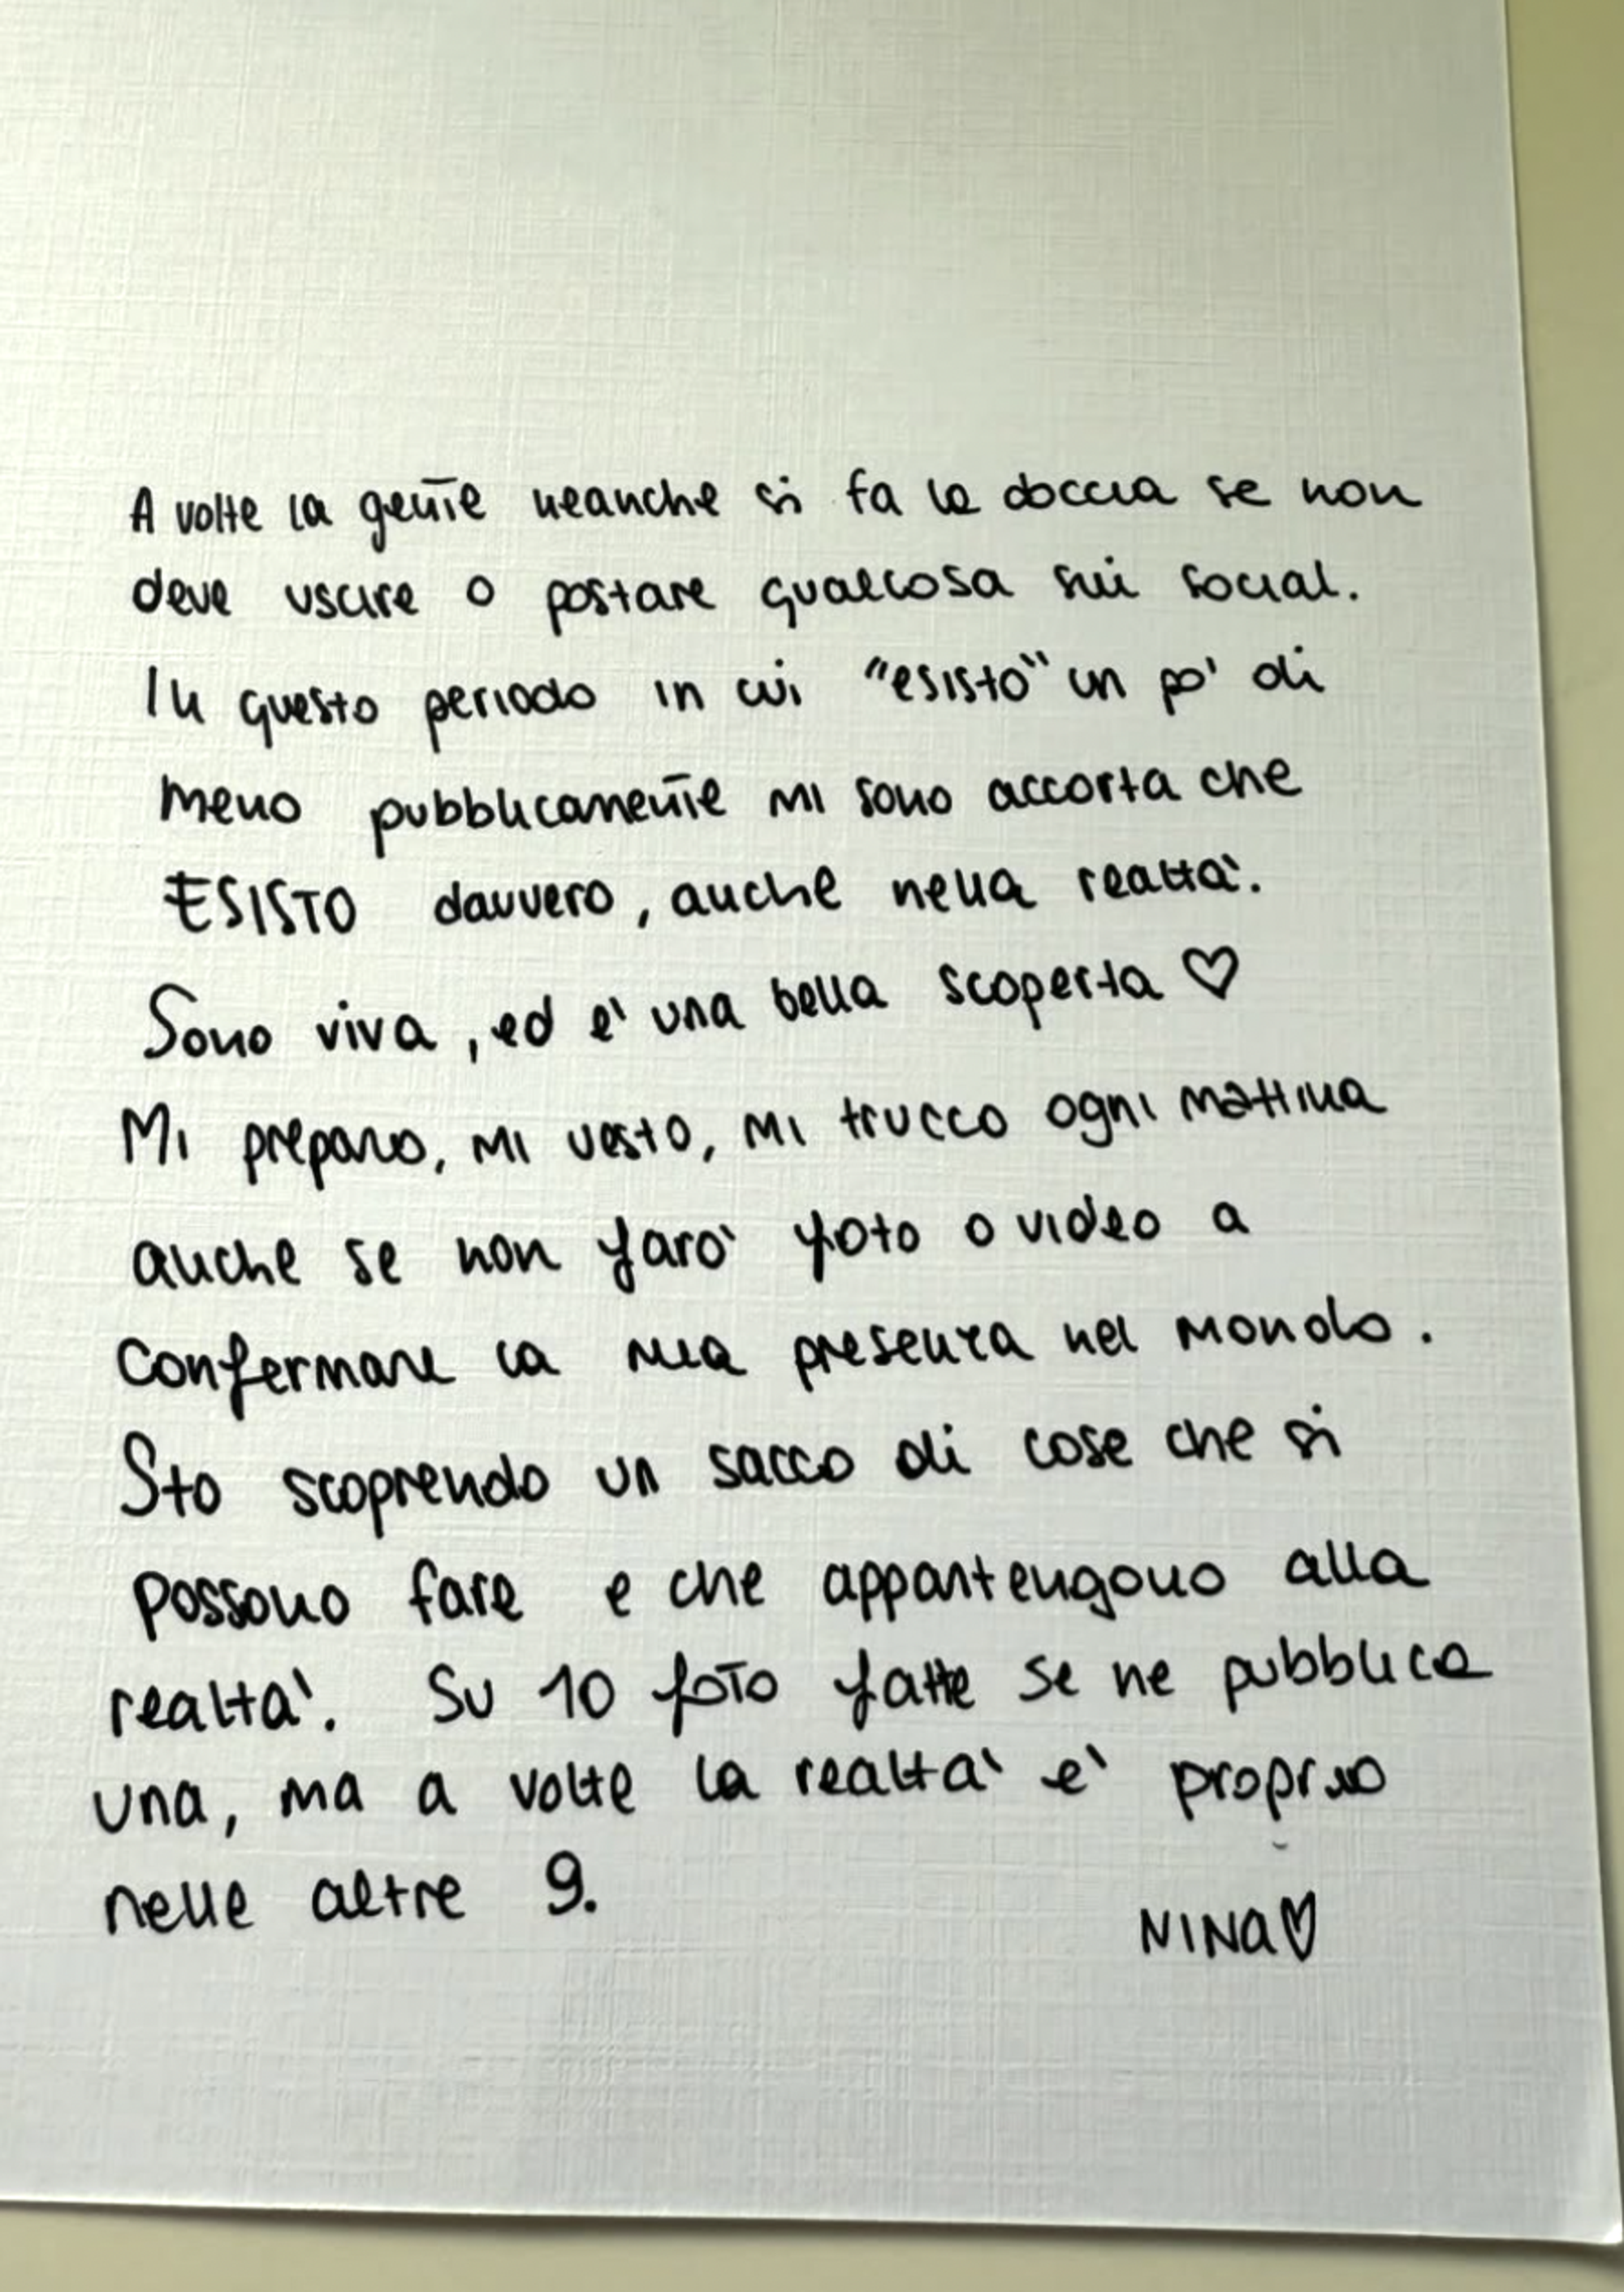 A volte la gente neanche si fa la doccia se non
deve uscire o postare qualcosa sui social.
In questo periodo in cui "esisto" un po' di
meno pubblicamente mi sono accorta che
ESISTO davvero, anche nella realta'.
Sono viva, ed e' una bella scoperta ♡
Mi preparo, mi vesto, mi trucco ogni mattina
anche se non faro' foto o video a
confermare la mia presenza nel mondo.
Sto scoprendo un sacco di cose che si
possono fare e che appartengono alla
realta'. Su 10 foto fatte se ne pubblica
una, ma a volte la realta' e' proprio
nelle altre 9.
NINA♡